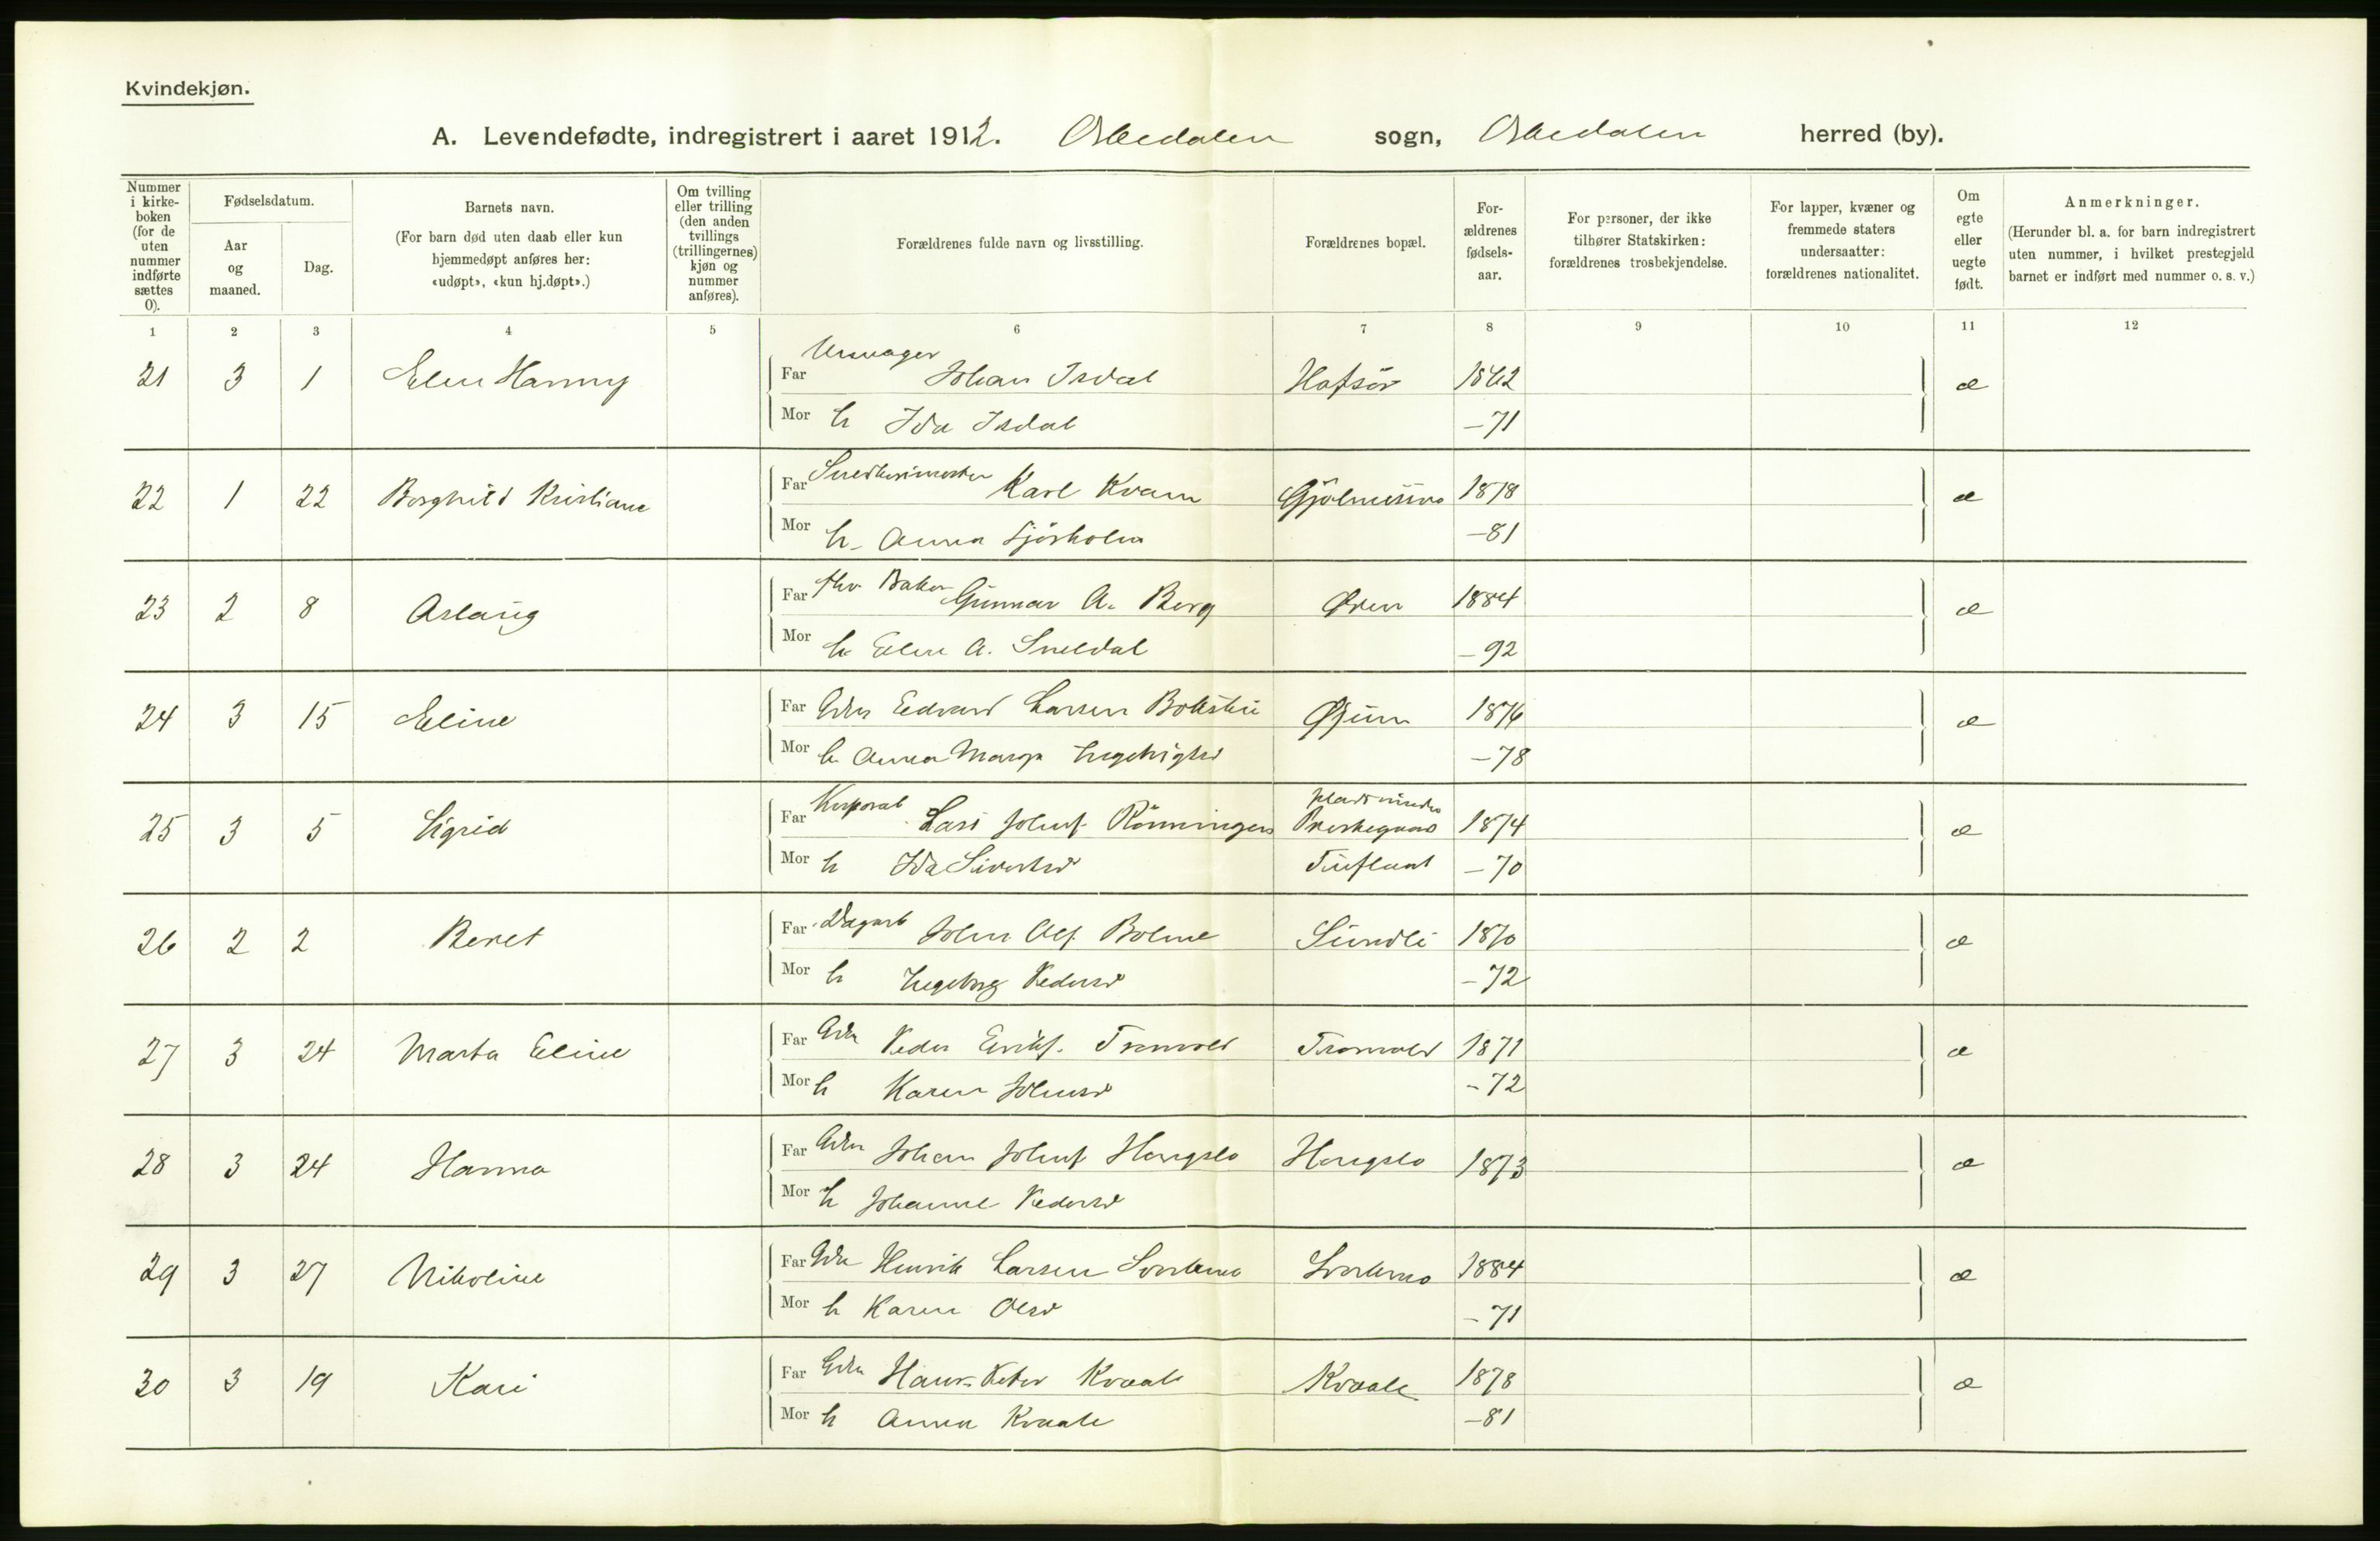 Kvindekjøn.
A. Levendefødte, indregistrert i aaret 1912. Orkedalen sogn, Orkedalen herred (by).
Nummer i kirke-boken (for de uten nummer indførte sættes 0).
Fødselsdatum.
Aar og maaned.
Dag.
Barnets navn.
(For barn død uten daab eller kun hjemmedøpt anføres her: «udøpt», «kun hj.døpt».)
Om tvilling eller trilling (den anden tvillings (trillingernes) kjøn og nummer anføres).
Forældrenes fulde navn og livsstilling.
Forældrenes bopæl.
For-ældrenes fødsels-aar.
For personer, der ikke tilhører Statskirken: forældrenes trosbekjendelse.
For lapper, kvæner og fremmede staters undersaatter: forældrenes nationalitet.
Om egte eller uegte født.
Anmerkninger.
(Herunder bl. a. for barn indregistrert uten nummer, i hvilket prestegjeld barnet er indført med nummer o. s. v.)
1 2 3 4 5 6 7 8 9 10 11 12
21 3 1 Elen Hanny Far Urmager Johan Isdal 1862 æ
Mor h Ida Isdal -71
22 1 22 Borghild Kristiane Far Snedkermester Karl Kvam 1878 æ
Mor h. Anna Sjøsholm -81
23 2 8 Aslaug Far Baker Gunnar A. Berg Øren 1884 æ
Mor h. Elen A. Sneldal -92
24 3 15 Eline Far Gdbr Edvard Larsen 1876 æ
Mor h. Anna Marg. Ingebrigtsd -78
25 3 5 Sigrid Far Korporal Lars Johnf. Rønningen pladsen under Prestegaard 1874 æ
Mor h Ida Sivertsd -70
26 2 2 Beret Far Dagarb John Olf. Bolme Sundli 1870 æ
Mor h Ingeborg Pedersd -72
27 3 24 Marta Eline Far Gdbr Peder Erikf. Tronvold Tronvold 1871 æ
Mor h Karen Johnsd -72
28 3 24 Hanna Far Gdbr Johan Johnf. Hongslo Hongslo 1873 æ
Mor h Johanne Pedersd
29 3 27 Nikoline Far Gdbr Henrik Larsen Svorkmo Svorkmo 1884 æ
Mor h Karen Olsd -71
30 3 19 Kari Far Gdbr Hans Peter Kvaale Kvaale 1878 æ
Mor h Anna Kvaale -81